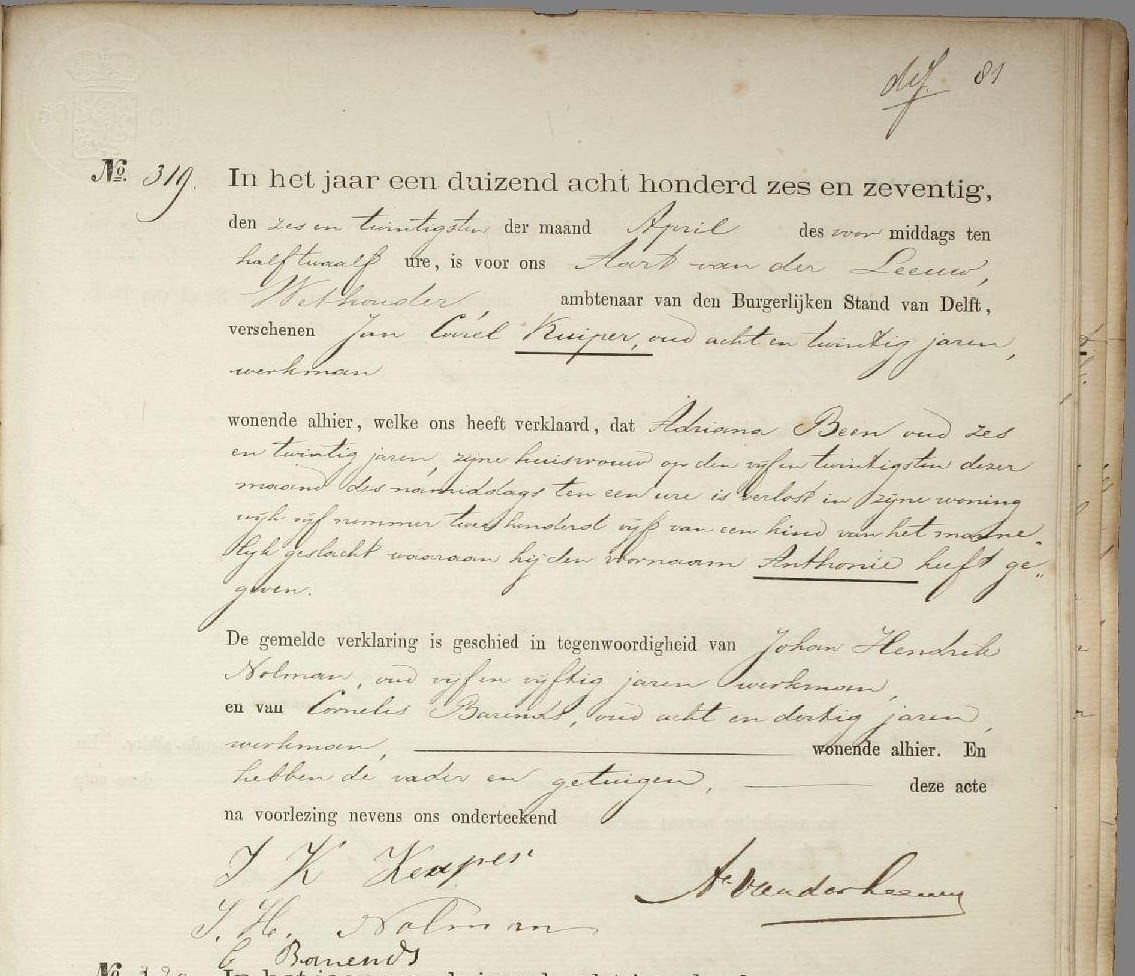 81
No. 319. In het jaar een duizend acht honderd zes en zeventig,
den zes en twintigsten der maand April des voor middags ten
half twaalf ure, is voor ons Aart van der Leeuw,
Wethouder ambtenaar van den Burgerlijken Stand van Delft,
verschenen Jan Carel Kuiper, oud acht en twintig jaren,
werkman
wonende alhier, welke ons heeft verklaard, dat Adriana Been oud zes
en twintig jaren, zijne huisvrouw op den vijf en twintigsten dezer
maand des namiddags ten een ure is verlost in zijne woning
wijk vijf nummer twee honderd vijf van een kind van het manne-
lijk geslacht waaraan hij den voornaam Anthonie heeft ge„
geven.
De gemelde verklaring is geschied in tegenwoordigheid van Johan Hendrik
Nolman, oud vijf en vijftig jaren werkman,
en van Cornelis Barends, oud acht en dertig jaren,
werkman, wonende alhier. En
hebben de vader en getuigen, deze acte
na voorlezing nevens ons onderteekend
J K Keuper
A. van der Leeuw
J. H. Nolman
C Barends
No. 320 In het jaar een duizend acht honderd